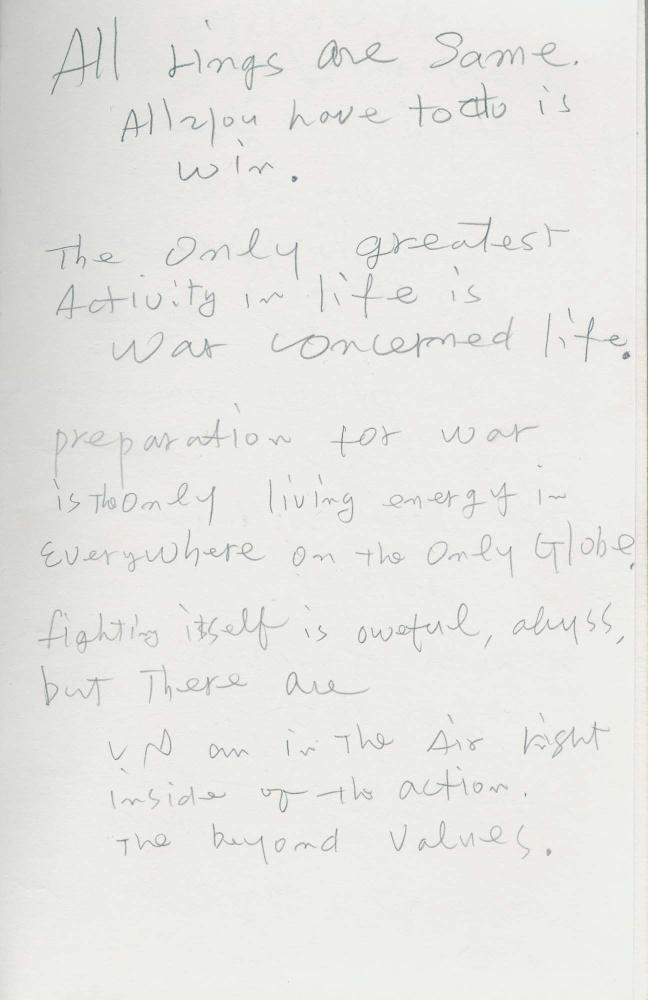 All tings are Same.
All you have to do is
win.
The Only greatest
Activity in life is
War concerned life.
preparation for war
is the only living energy in
Everywhere on the only Globe.
fighting itself is aweful, abyss,
but There are
in The Air Right
inside of the action.
The beyond Values.